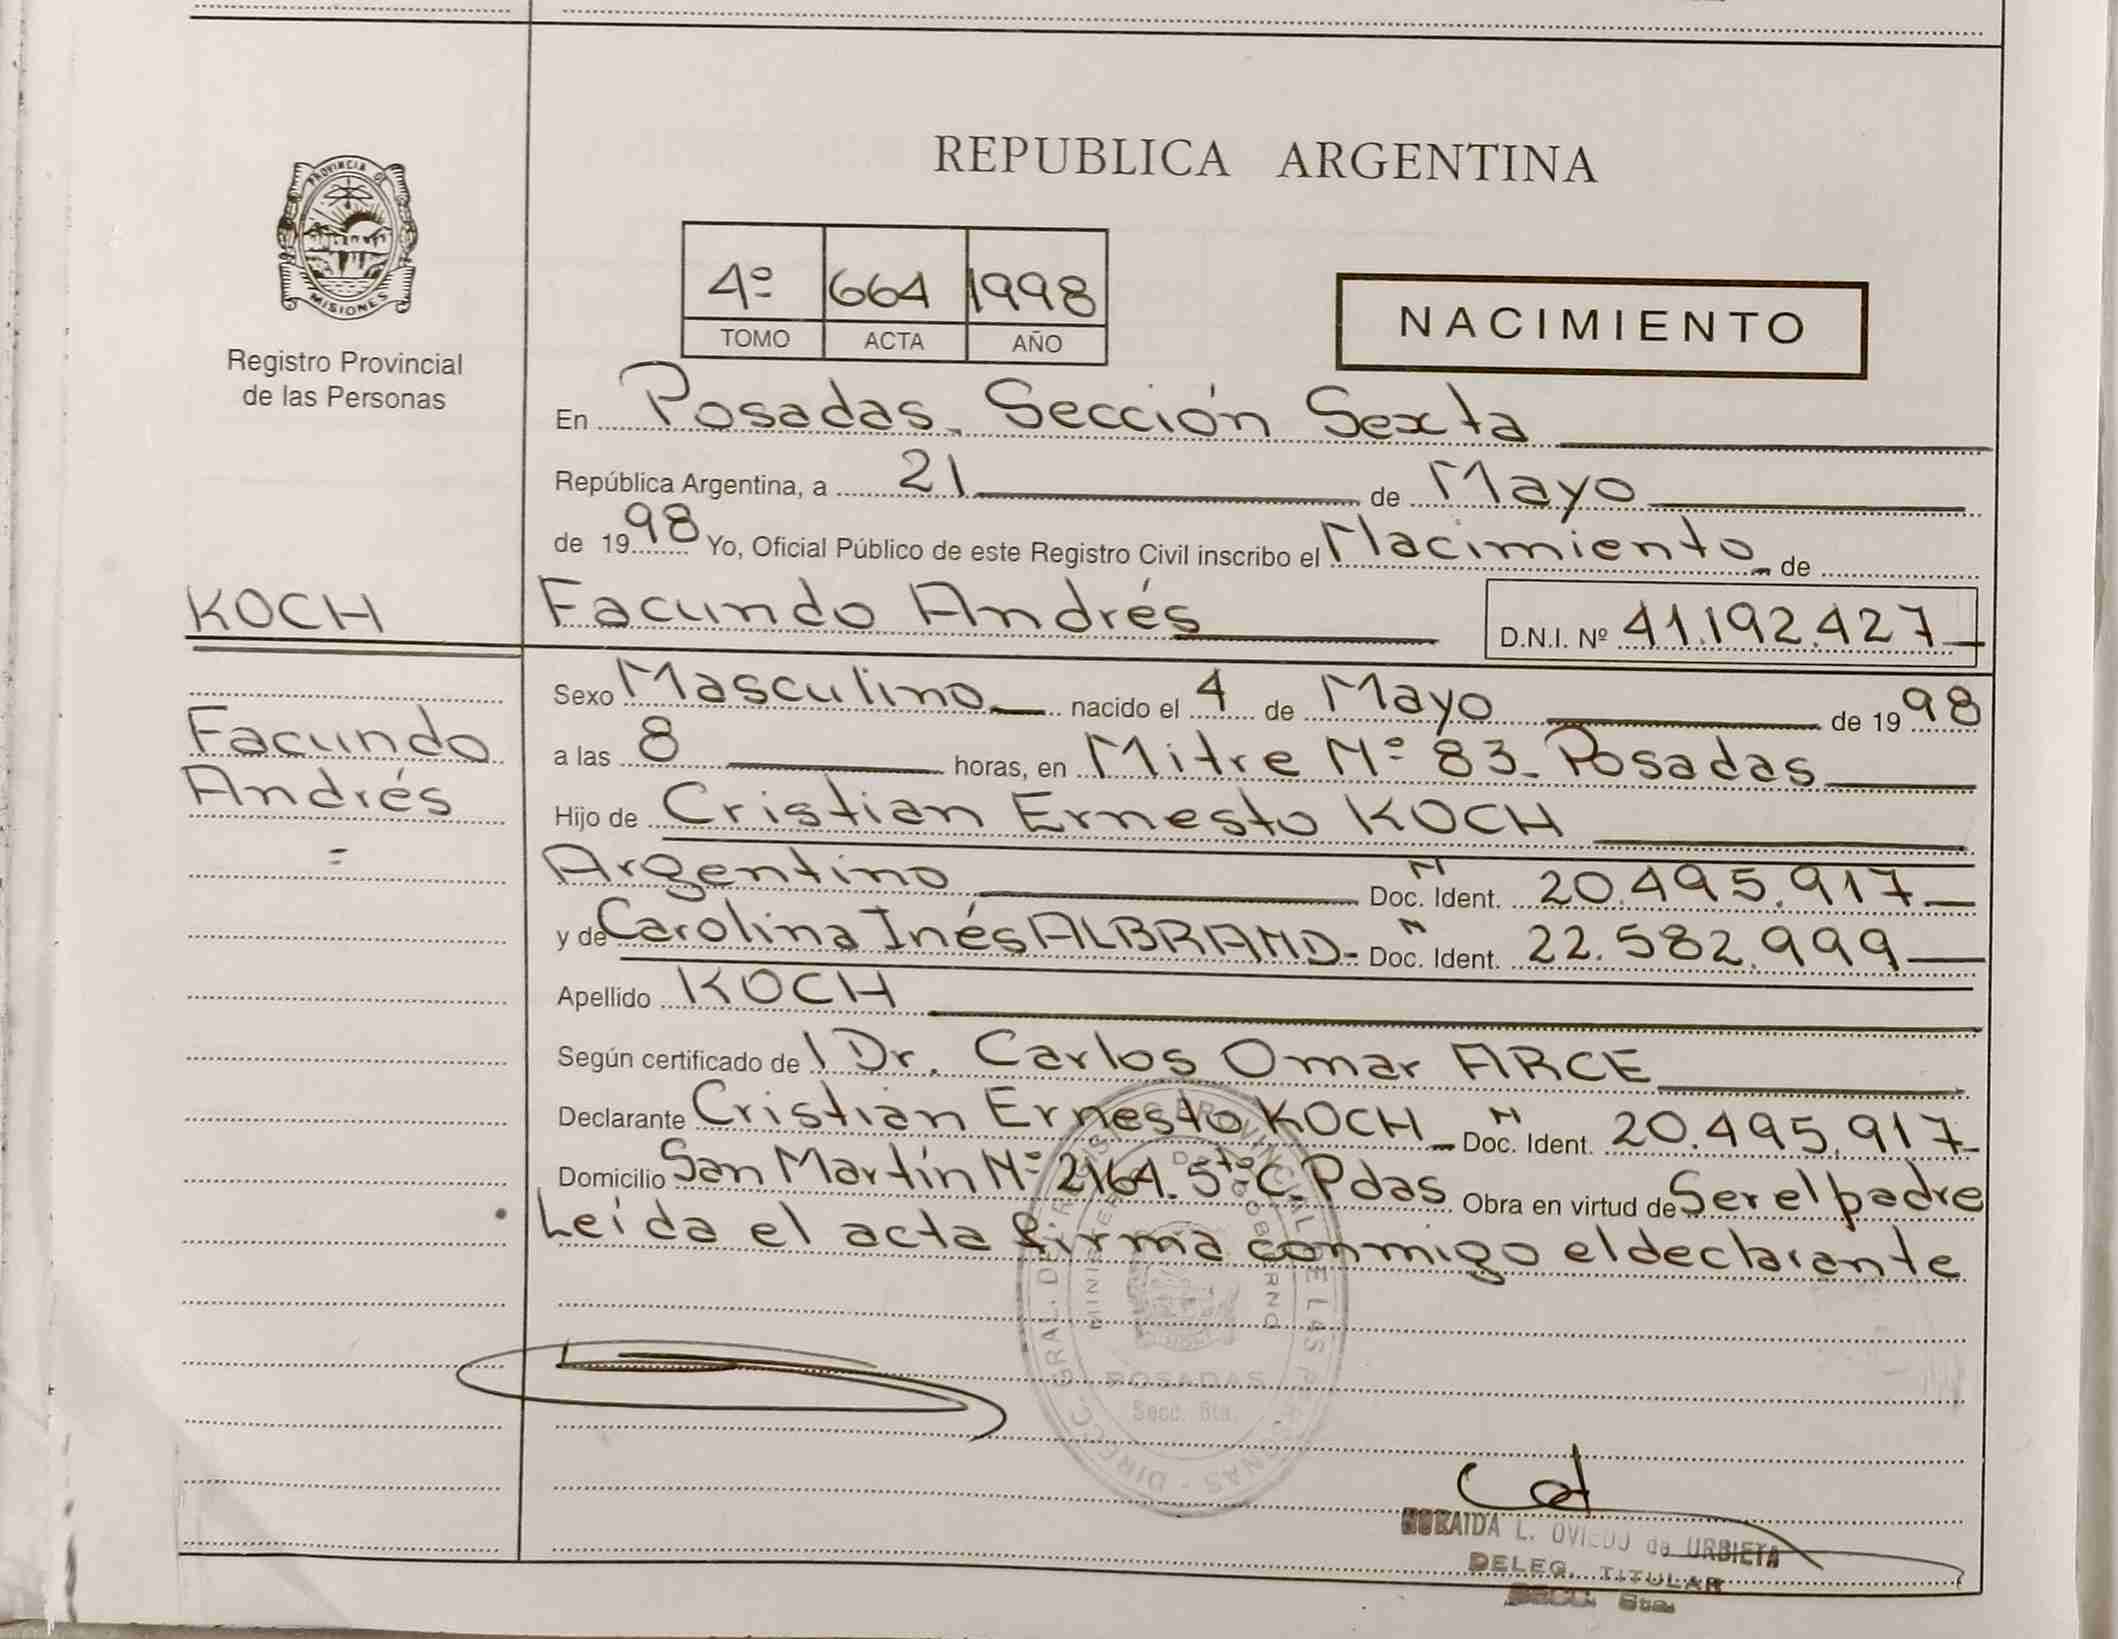 REPUBLICA ARGENTINA
PROVINCIA DE
MISIONES
Registro Provincial
de las Personas
4º 664 1998
TOMO ACTA AÑO
NACIMIENTO
En Posadas. Sección Sexta
República Argentina, a 21 de Mayo
de 1998 Yo, Oficial Público de este Registro Civil inscribo el Nacimiento de
KOCH
Facundo Andrés D.N.I. Nº 41.192.427
Facundo
Andrés
=
Sexo Masculino nacido el 4 de Mayo de 1998
a las 8 horas, en Mitre Nº 83 - Posadas
Hijo de Cristian Ernesto KOCH
Argentino N Doc. Ident. 20.495.917
y de Carolina Inés ALBRAND - N Doc. Ident. 22.582.999
Apellido KOCH
Según certificado de l Dr. Carlos Omar ARCE
Declarante Cristian Ernesto KOCH - N Doc. Ident. 20.495.917
Domicilio San Martín Nº 2164. 5to C. Pdas Obra en virtud de Ser el padre
Leída el acta firma conmigo el declarante
DIREC. GRAL. DE REGISTRO PROVINCIAL DE LAS PERSONAS
MINISTERIO DE GOBIERNO
POSADAS
Secc. 6ta.
L. OVIEDO de URBIETA
DELEG. TITULAR
SECC. 6ta.